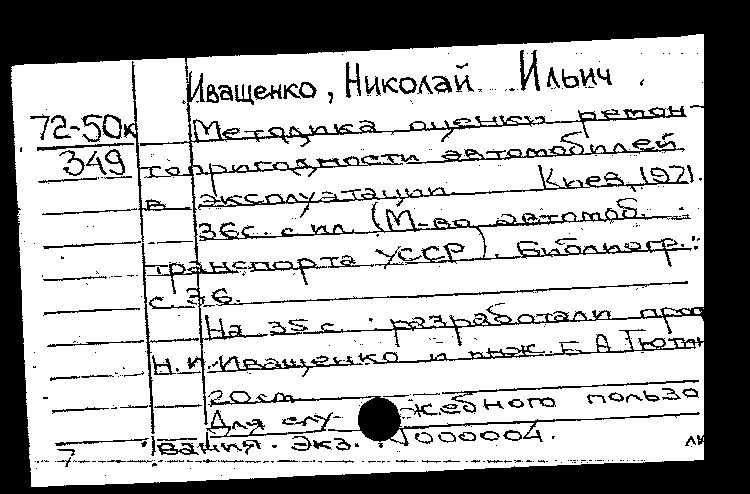 Иващенко, Николай Ильич.
72-50к Методика оценки ремон-
349 топригодности автомобилей
в эксплуатации. Киев, 1971.
36с. с ил. (М-во автомоб.
транспорта УССР). Библиогр.:
с. 36.
На 35 с.: разработали проф
Н.И. Иващенко и инж. Б.А. Тютин
20см
Для слу- жебного пользо
вания. Экз. №000004.
7